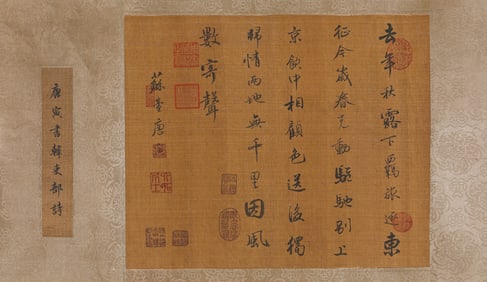 去年秋露下羈旅逐東
征今歲春光動驅馳别上
京飲中相顧色送後獨
歸情兩地無千里因風
數寄聲
蘇臺唐
唐寅書韓吏部詩